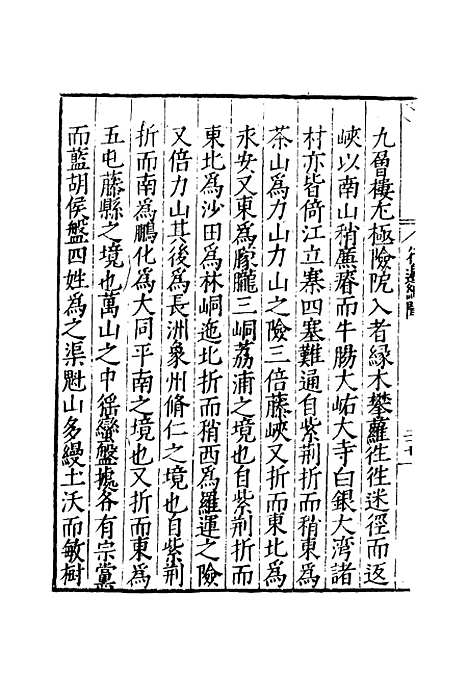 九層樓尤極險阨入者縁木攀蘿徃徃迷徑而返
峽以南山稍薦瘠而牛腸大岵大寺白銀大湾諸
村亦皆倚江立寨四塞難通自紫荆折而稍東爲
茶山爲力山力山之險三倍藤峽又折而東北爲
永安又東爲朦朧三峒荔浦之境也自紫荆折而
東北爲沙田爲林峒迤北折而稍西爲羅運之險
又倍力山其後爲長洲象州脩仁之境也自紫荆
折而南爲鵬化爲大同平南之境也又折而東爲
五屯藤縣之境也萬山之中徭蠻盤據各有宗黨
而藍胡侯盤四姓爲之渠魁山多縵土沃而敏樹